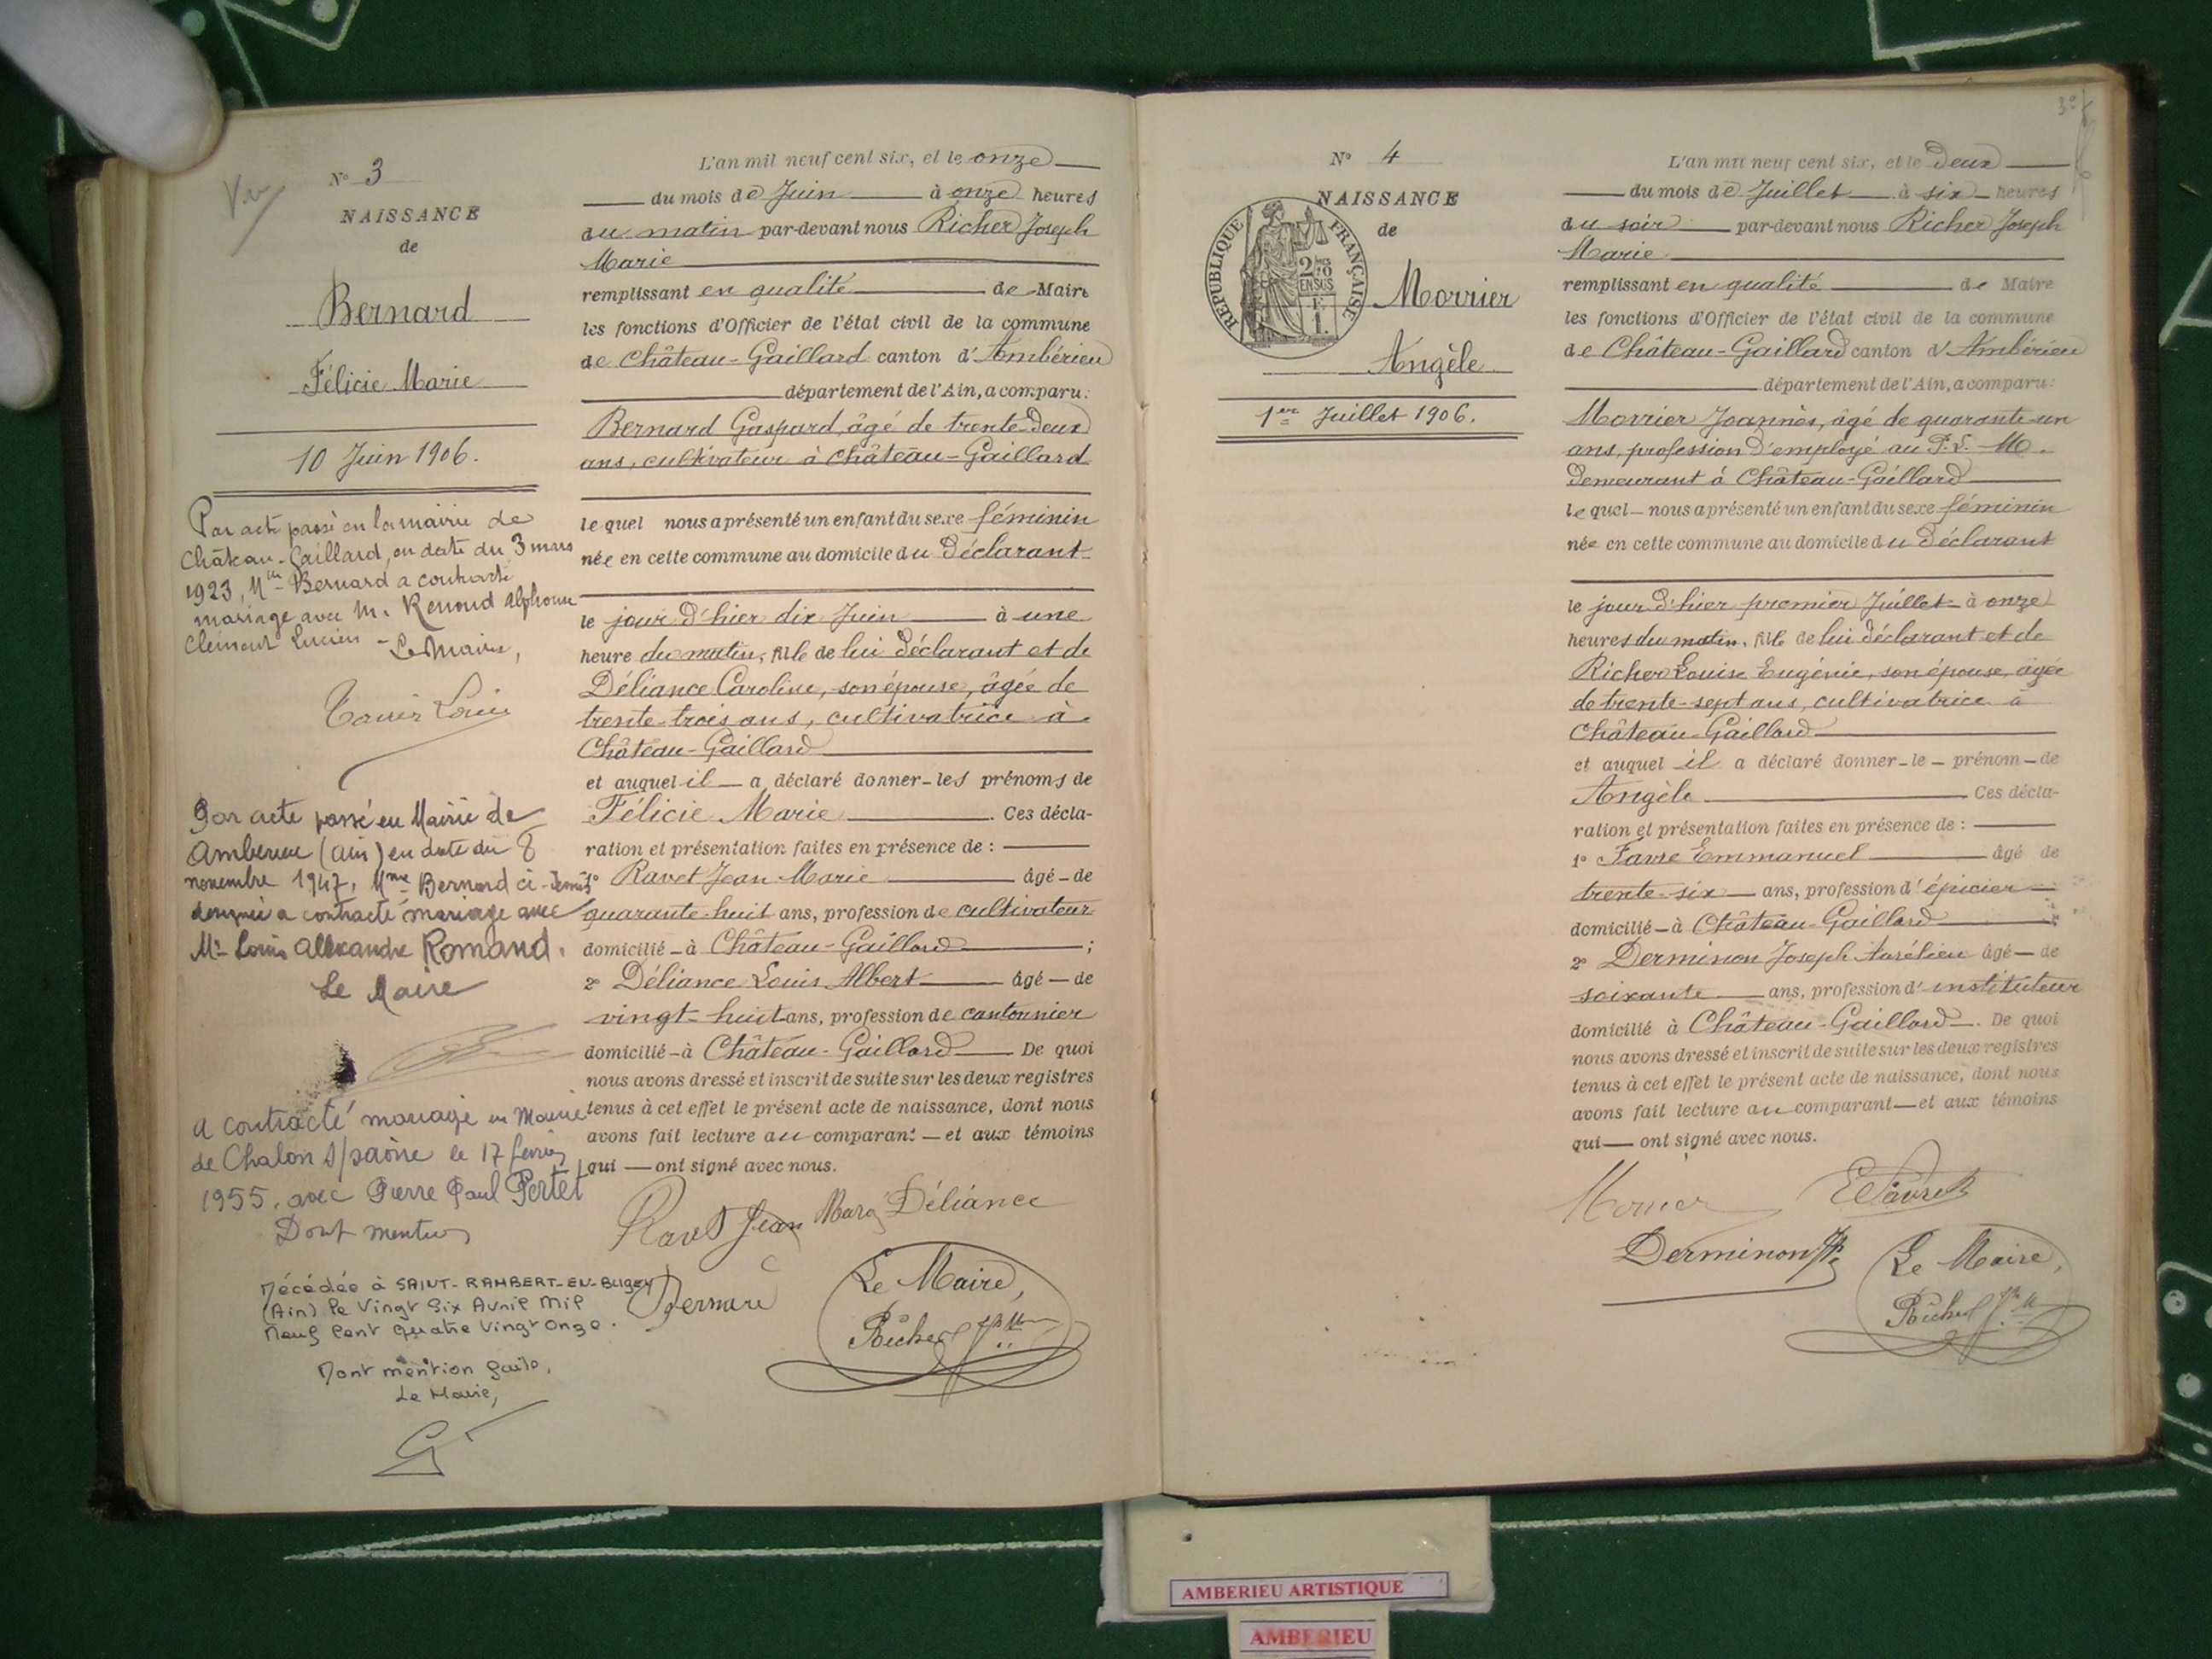 Vu
N° 3
NAISSANCE
de
Bernard
Félicie Marie
10 Juin 1906.
Par acte passé en la mairie de
Château-Gaillard, en date du 3 mars
1923, Mlle Bernard a contracté
mariage avec M. Renoud Alphonse
Clément Lucien - Le Maire,
Louis
Par acte passé en Mairie de
Amberieu (Ain) en date du 8
novembre 1947, Mme Bernard ci-dessus
designée a contracté mariage avec
Mr Louis Alexandre Romand.
Le Maire
a contracté mariage en Mairie
de Chalon s/saône le 17 février
1955, avec Pierre Paul Pertet
Dont mention
Décédée à SAINT-RAMBERT-EN-BUGEY
(Ain) le Vingt Six Avril Mil
Neuf Cent Quatre Vingt Onze.
Dont mention faite,
Le Maire,
L'an mil neuf cent six, et le onze
du mois de Juin à onze heures
du matin par-devant nous Richer Joseph
Marie
remplissant en qualité de Maire
les fonctions d'Officier de l'état civil de la commune
de Château-Gaillard canton d'Ambérieu
département de l'Ain, a comparu:
Bernard Gaspard, âgé de trente-deux
ans, cultivateur à Château-Gaillard
le quel nous a présenté un enfant du sexe féminin
née en cette commune au domicile du déclarant
le jour d'hier dix Juin à une
heure du matin, fille de lui déclarant et de
Déliance Caroline, son épouse, âgée de
trente-trois ans, cultivatrice à
Château-Gaillard
et auquel il a déclaré donner les prénoms de
Félicie Marie. Ces décla-
ration et présentation faites en présence de :
1° Ravet Jean Marie âgé de
quarante-huit ans, profession de cultivateur
domicilié à Château-Gaillard ;
2° Déliance Louis Albert âgé de
vingt-huit ans, profession de cantonnier
domicilié à Château-Gaillard De quoi
nous avons dressé et inscrit de suite sur les deux registres
tenus à cet effet le présent acte de naissance, dont nous
avons fait lecture au comparant et aux témoins
qui ont signé avec nous.
Ravet Jean Déliance
Bernard
Le Maire,
Richer
N° 4
NAISSANCE
de
RÉPUBLIQUE FRANÇAISE
2/10
EN SUS
Morrier
Angèle
1er Juillet 1906.
L'an mil neuf cent six, et le deux
du mois de Juillet à six heures
du soir par-devant nous Richer Joseph
Marie
remplissant en qualité de Maire
les fonctions d'Officier de l'état civil de la commune
de Château-Gaillard canton d'Ambérieu
département de l'Ain, a comparu:
Morrier Joannès, âgé de quarante-un
ans, profession d'employé au P.L.M.
demeurant à Château-Gaillard
le quel nous a présenté un enfant du sexe féminin
née en cette commune au domicile du déclarant
le jour d'hier premier Juillet à onze
heures du matin, fille de lui déclarant et de
Richer Louise Eugénie, son épouse, âgée
de trente-sept ans, cultivatrice à
Château-Gaillard
et auquel il a déclaré donner le prénom de
Angèle Ces décla-
ration et présentation faites en présence de :
1° Favre Emmanuel âgé de
trente-six ans, profession d'épicier
domicilié à Château-Gaillard
2° Derminon Joseph Aurélien âgé de
soixante ans, profession d'instituteur
domicilié à Château-Gaillard. De quoi
nous avons dressé et inscrit de suite sur les deux registres
tenus à cet effet le présent acte de naissance, dont nous
avons fait lecture au comparant et aux témoins
qui ont signé avec nous.
Morrier E Favre
Derminon
Le Maire,
Richer
AMBERIEU ARTISTIQUE
AMBERIEU